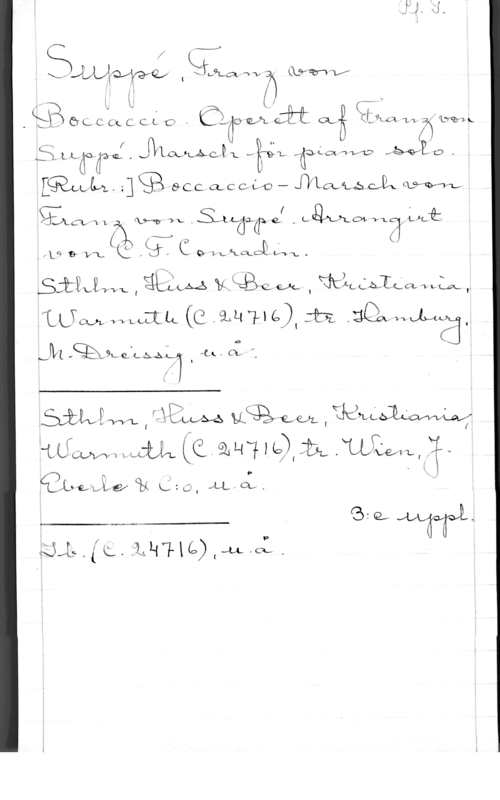 Pf. S.
Suppé, Franz von
Boccaccio. Operett af Franz von
Suppé. Marsch för piano solo.
[Rubr.:] Boccaccio-Marsch von
Franz von Suppé. Arrangirt
von C. F. Conradin.
Sthlm, Huss & Beer, Kristiania,
Warmuth (C. 24716), tr. Hamburg,
M. Dreissig, u. å.
Sthlm, Huss & Beer, Kristiania,
Warmuth (C. 24716), tr. Wien, J.
Eberle & C:o, u. å.
3:e uppl.
Ib. (C. 24716), u. å.